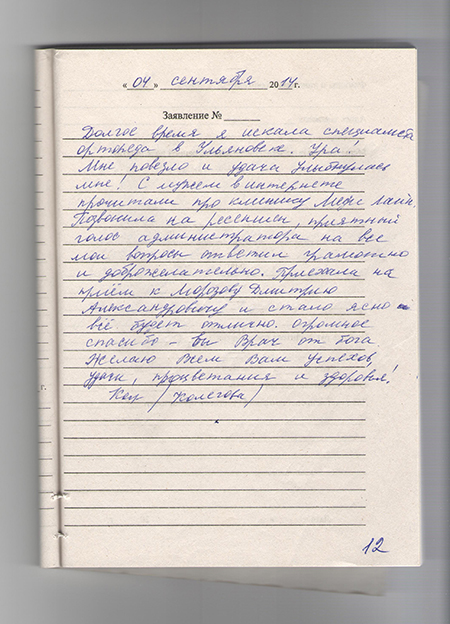 « 04 » сентября 2014 г.
Заявление №
Долгое время я искала специалиста
ортопеда в Ульяновске. Ура!
Мне повезло и удача улыбнулась
мне! С мужем в интернете
прочитали про клинику Меди Лайн.
Позвонила на ресепшн, приятный
голос администратора на все
мои вопросы ответил грамотно
и доброжелательно. Приехала на
приём к Морозову Дмитрию
Александровичу и стало ясно –
всё будет отлично. Огромное
спасибо – Вы Врач от бога.
Желаю Всем Вам успехов,
удачи, процветания и здоровья!
/Колегова/
12